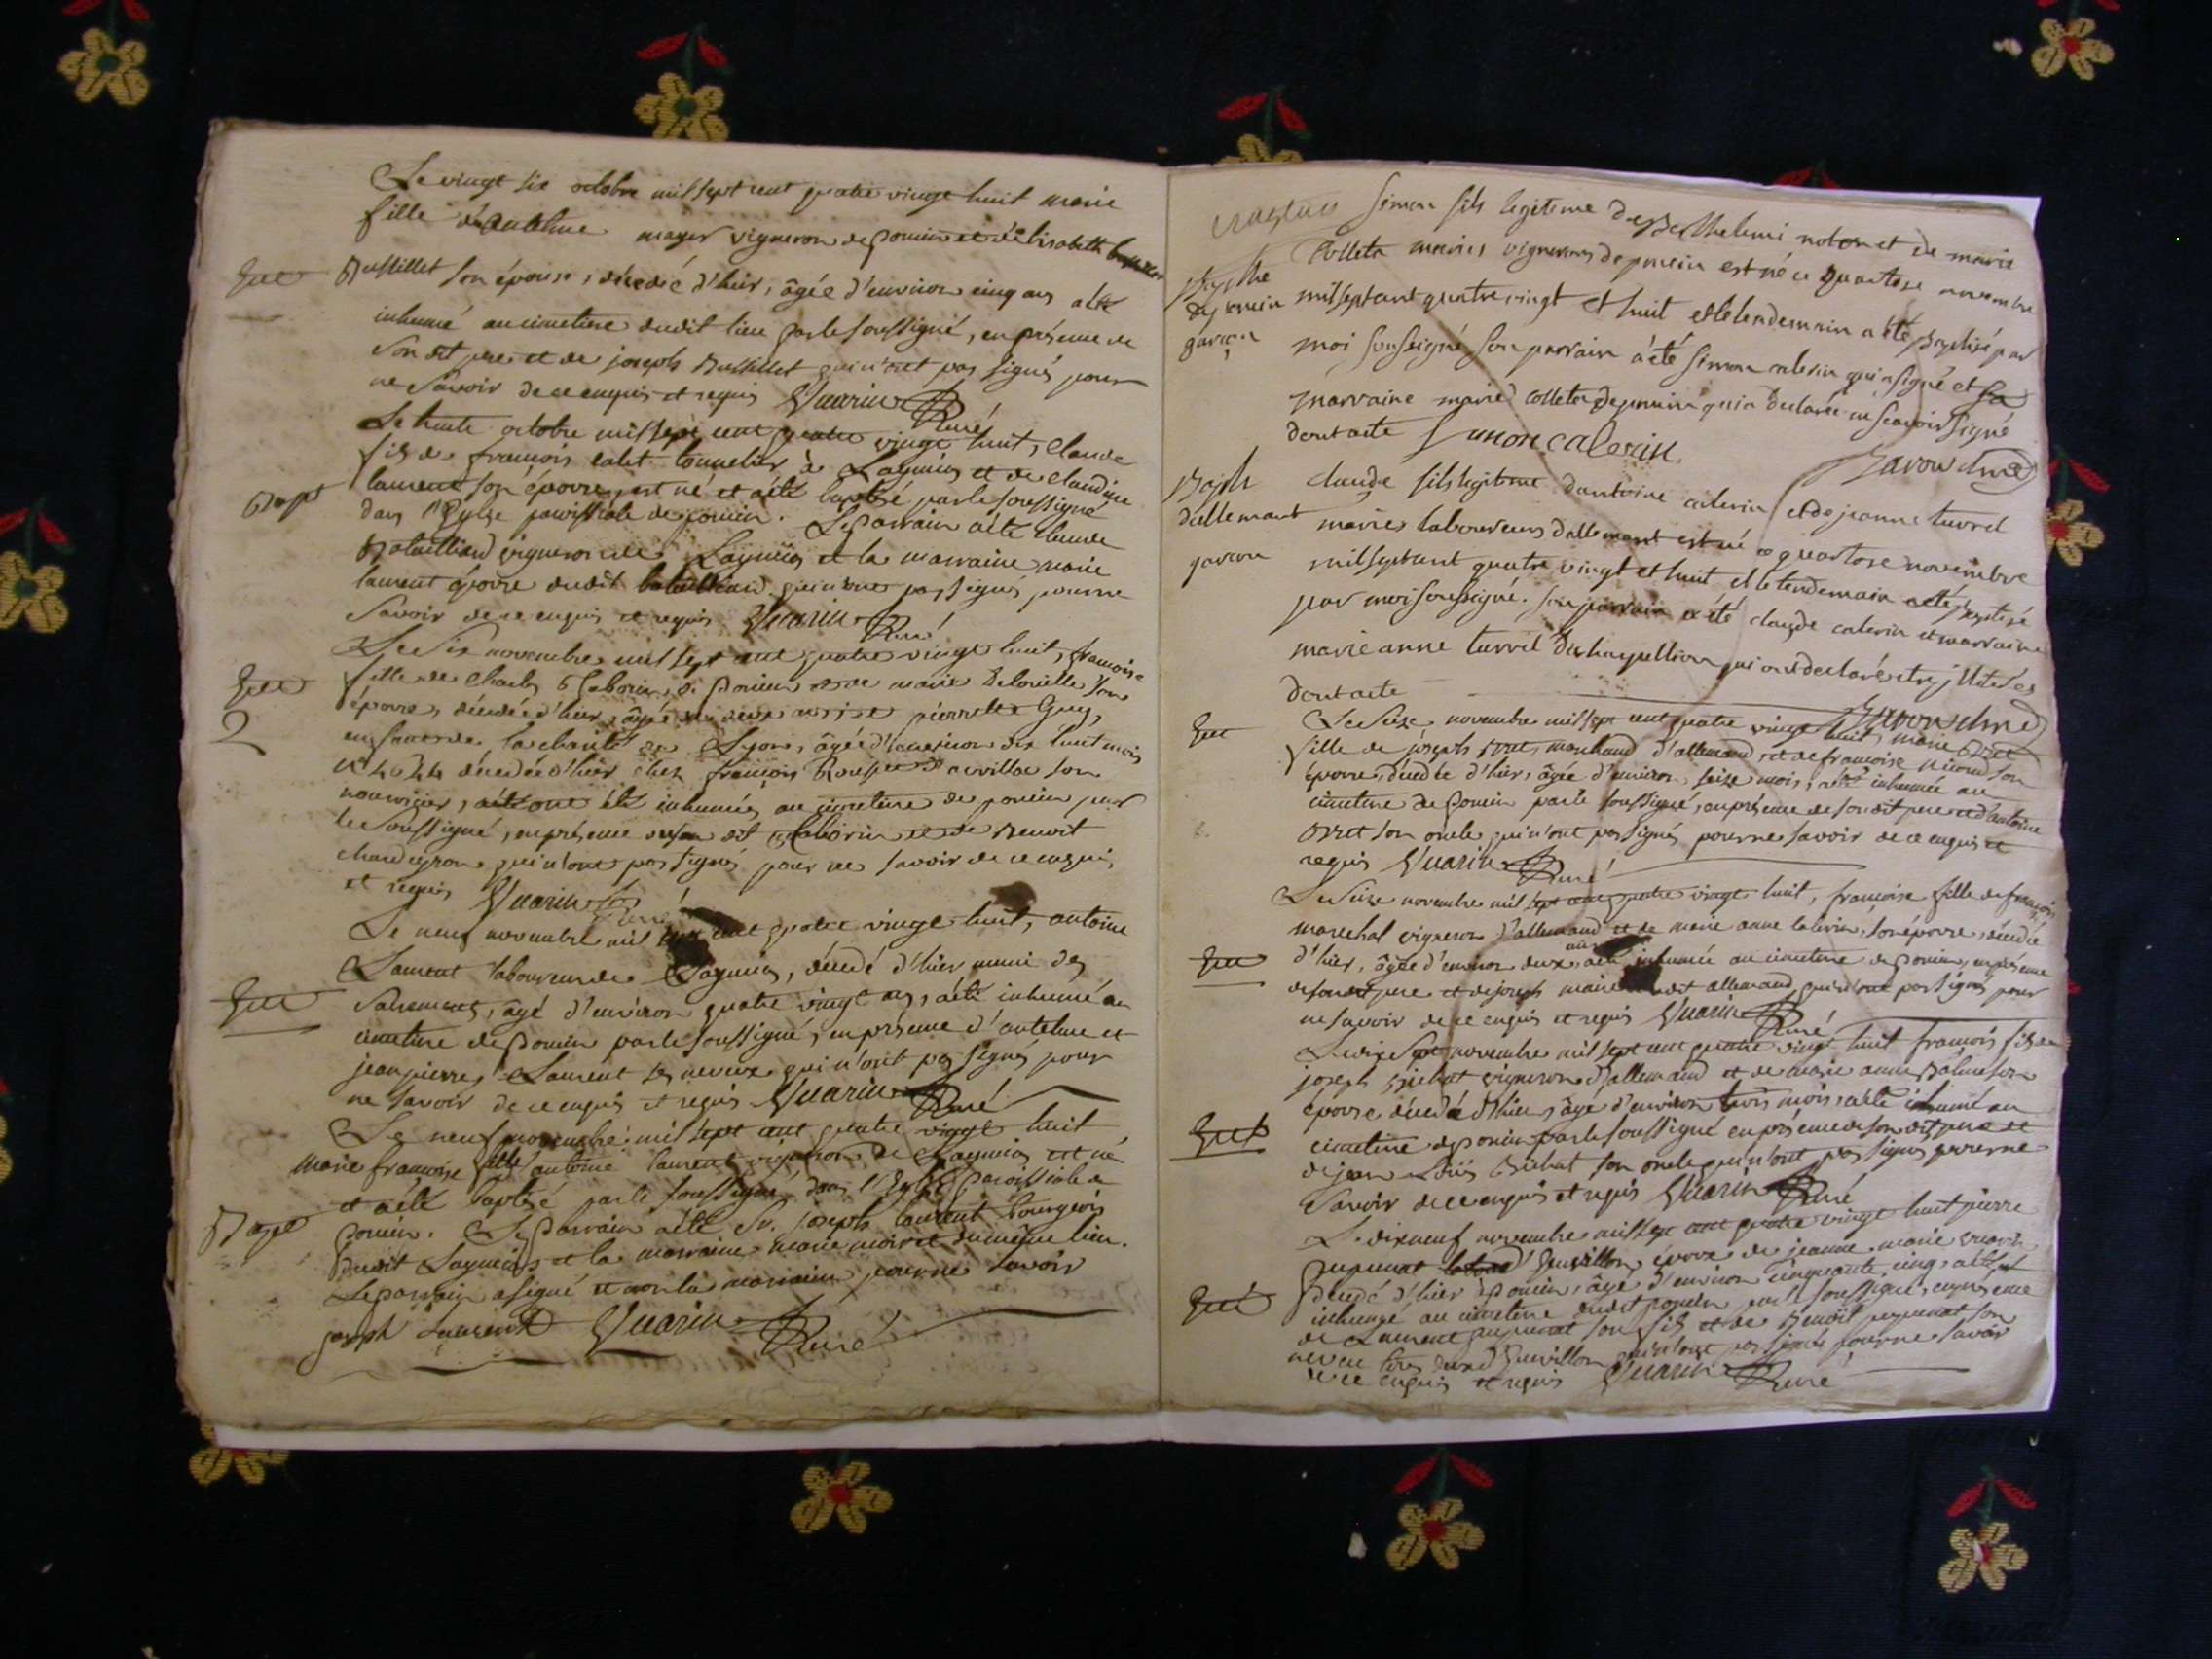 Le vingt six octobre mil sept cent quatre vingt huit marie
fille d'antelme mayer vigneron de poncin et d'elisabeth
Bussillet son épouse, décédée d'hier, âgée d'environ cinq ans a été
inhumé au cimetiere dudit lieu par le soussigné, en présence de
son dit pere et de joseph Bussillet qui n'ont pas signés pour
ne savoir de ce enquis et requis Guarin Curé
Le trente octobre mil sept cent quatre vingt huit, claude
fils de francois tonnelier à Leymiaz et de claudine
Bapt
laurent son épouse, est né et a été baptisé par le soussigné
dans l'Eglise paroissiale de poncin. Le parrain a été claude
Bataillard vigneron de Leymiaz et la marraine marie
laurent épouse dudit bataillard qui n'ont pas signés pour ne
savoir de ce enquis et requis Guarin Curé
Le six novembre mil sept cent quatre vingt huit, francoise
fille de Charles de Poncin et de marie son
2
épouse, décédée d'hier, âgée de deux ans et pierrette Guy,
enfant de la charité de Lyon, âgée d'environ dix huit mois
décédée d'hier chez francois son
nourricier, ont été inhumées au cimetiere de poncin par
le soussigné, en présence dudit et de Benoit
qui n'ont pas signés pour ne savoir de ce enquis
et requis Guarin Curé
Le neuf novembre mil sept cent quatre vingt huit, antoine
Laurent laboureur de Leymiaz, décédé d'hier muni des
sacremens, âgé d'environ quatre vingt ans, a été inhumé au
cimetiere de Poncin par le soussigné, en présence d'antelme et
jean pierre Laurent ses neveux qui n'ont pas signés pour
ne savoir de ce enquis et requis Guarin Curé
Le neuf novembre mil sept cent quatre vingt huit
marie francoise fille antoine laurent vigneron de Leymiaz est né
et a été baptisé par le soussigné dans l'Eglise Paroissiale de
Bapt
poncin. Le Parrain a été Sr. joseph laurent bourgeois
dudit Leymiaz et la marraine marie moiret du même lieu.
Le parrain a signé et non la marraine pour ne savoir
joseph Laurent Guarin Curé
simon fils legitime de Berthelemi et de marie
Bapthe
colleta mariés vignerons de poncin est né ce quatorse novembre
de poncin
mil sept cent quatre vingt et huit et le lendemain a été Baptisé par
garçon
moi sousigné son parrain a été simon calerin qui a signé et sa
marraine marie colleta de poncin qui a declarée ne sçavoir signé
dont acte Simon calerin
Baph
claude fils legitime dantoine calerin et de jeanne turrel
dallemant
mariés laboureurs dallemant est né ce quatorse novembre
garçon
mil sept cent quatre vingt et huit et le lendemain a été Baptisé
par moi sousigné. son parrain a été claude calerin et marraine
marie anne turrel qui ont declaré être illiteres
dont acte
Le seize novembre mil sept cent quatre vingt huit, marie
fille de joseph marchand d'allemand, et de francoise son
épouse, décédée d'hier, âgée d'environ seize mois, a été inhumée au
cimetiere de Poncin par le soussigné, en présence de son dit pere et d'antoine
son oncle qui n'ont pas signés pour ne savoir de ce enquis et
requis Guarin Curé
Le seize novembre mil sept cent quatre vingt huit, francoise fille de francois
marechal vigneron d'allemand et de marie anne calerin, son épouse, décédée
d'hier, âgée d'environ deux ans a été inhumée au cimetiere de Poncin, en présence
de son dit pere et de joseph dudit allemand, qui n'ont pas signés pour
ne savoir de ce enquis et requis Guarin Curé
Le dix sept novembre mil sept cent quatre vingt huit francois fils de
joseph Bichat vigneron d'allemand et de marie anne son
épouse décédé d'hier, âgé d'environ trois mois, a été inhumé au
cimetiere de Poncin par le soussigné en présence de son dit pere et
de jean Louis Bichat son oncle qui n'ont pas signés pour ne
savoir de ce enquis et requis Guarin Curé
Le dixneuf novembre mil sept cent quatre vingt huit pierre
époux de jeanne marie
décédé d'hier à Poncin, âgé d'environ cinquante cinq a été
inhumé au cimetiere dudit poncin par le soussigné, en présence
de Laurent son fils et de Benoit son
neveu qui n'ont pas signés pour ne savoir
de ce enquis et requis Guarin Curé